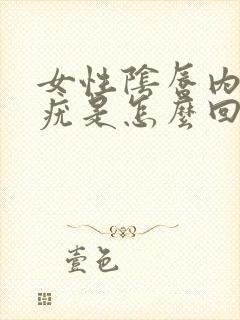 女性陰唇內
疣是怎麼回
壹色